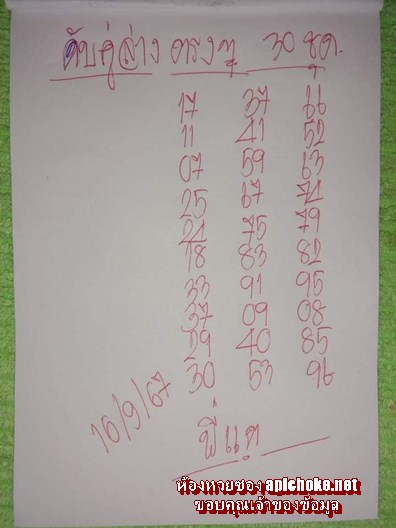 ดับคู่ล่าง ตรงๆ 30 ชุด.
17 37 66
11 41 52
07 59 63
25 67 74
24 75 79
18 83 82
33 91 95
37 09 08
29 40 85
30 53 96
16/9/67
พี่แต
ห้องหวยซอง apichoke.net
ขอบคุณเจ้าของข้อมูล